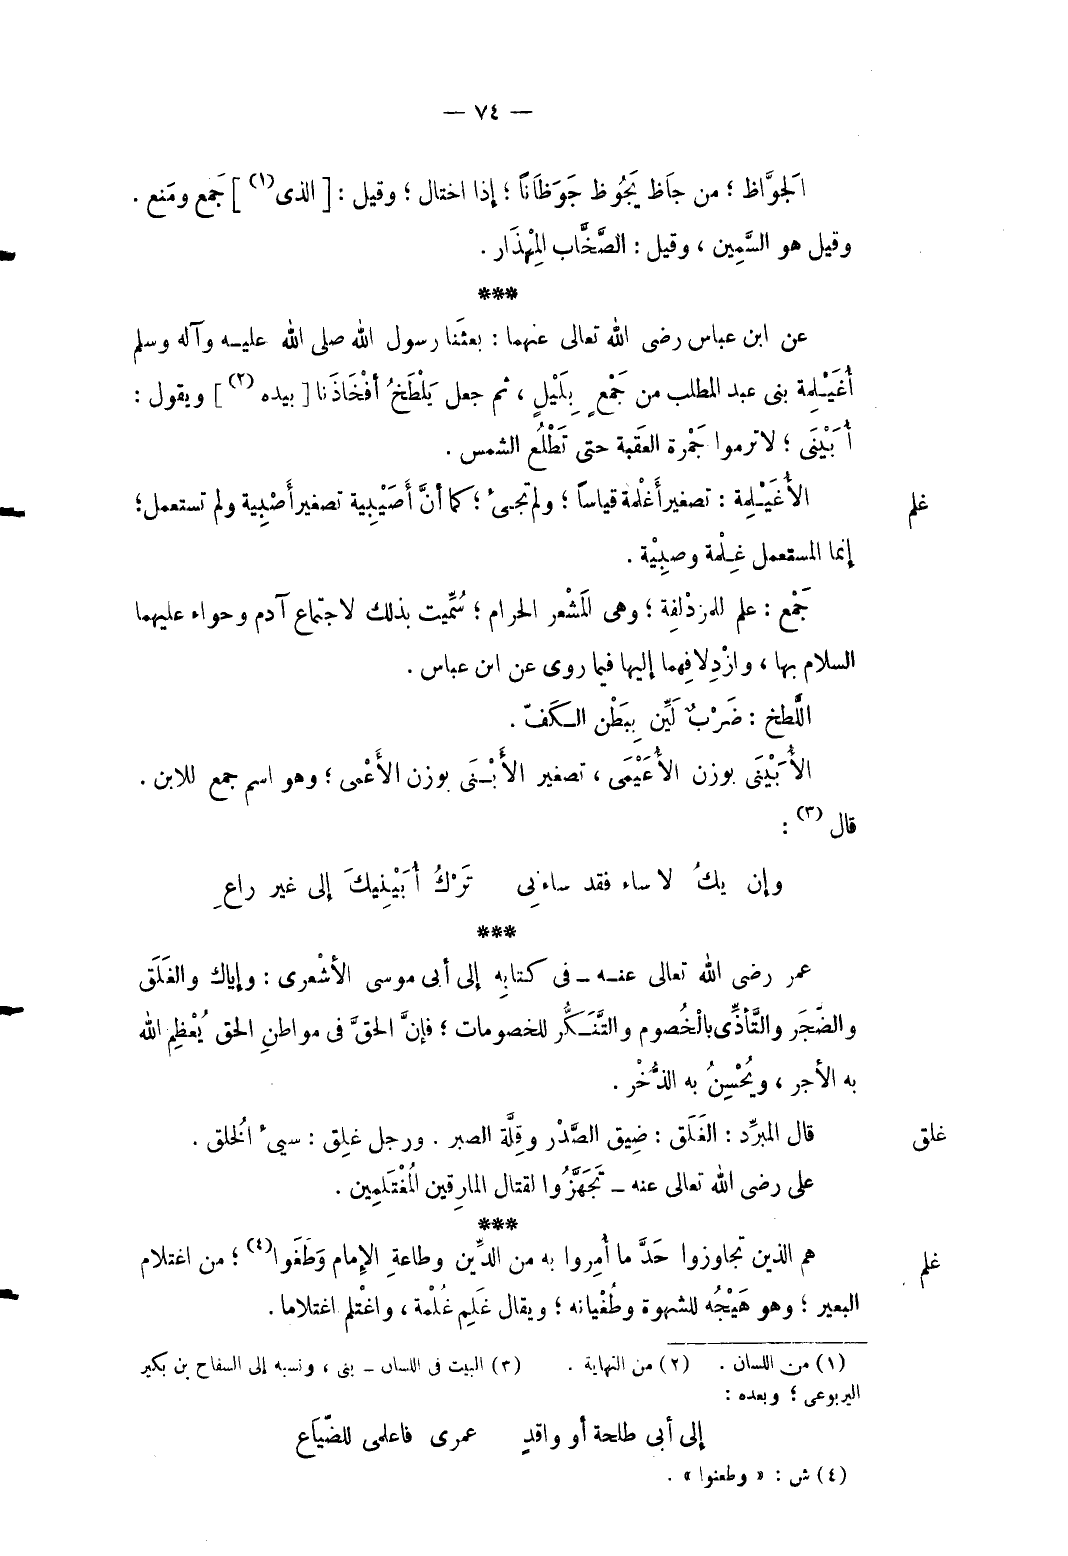 — ٧٤ —
الَجوَّاظ ؛ من جاَظ يَجُوظ جَوَظَاناً ؛ إذا اختال ؛ وقيل : [ الذى(١) ] جَمع ومَنع .
وقيل هو السَّمِين ، وقيل : الصَّخَّاب المِهْذَار .
***
عن ابن عباس رضى الله تعالى عنهما : بعثَنا رسول الله صلى الله عليه وآله وسلم
أُغَيْلِمة بنى عبد المطلب من جَمْعٍ بِلَيْلٍ ، ثم جعل يَلْطَخُ أفْخَاذَنا [ بيده (٢) ] ويقول :
أُبَيْنَى ؛ لا ترموا جَمْرة العَقَبة حتى تَطْلُع الشمس .
غلم
الأُغَيْلِمة : تصغير أَغْلمة قياساً ؛ ولم تجىء ؛ كما أنَّ أُصَيْبِية تصغير أَصْبِية ولم تستعمل ؛
إنما المستعمل غِلْمة وصبِيْة .
جَمْع : علم للمزدْلفِة ؛ وهى المَشْعر الحرام ؛ سُمِّيت بذلك لاجتماع آدم وحواء عليهما
السلام بها ، وازْدِلافِهما إليها فيما روى عن ابن عباس .
اللَّطخ : ضَرْبٌ لَيِّن بِبَطْن الكَفّ .
الأُبَيْنَى بوزن الأُعَيْمَى ، تصغير الأَبْنَى بوزن الأَعْمى ؛ وهو اسم جمع للابن .
قال (٣) :
وإن يكُ لا ساء فقد ساءنِى تَرْكُ أُبَيْنِيكَ إلى غير راعِ
***
عمر رضى الله تعالى عنه ــ فى كتابِه إلى أبى موسى الأشْعرى : وإياك والغَلَق
والضّجَر والتَّأذِّى بالْخُصوم والتَّنَكُّر للخصومات ؛ فإنَّ الحقَّ فى مواطنِ الحق يُعْظِم الله
به الأجر ، ويُحْسِنُ به الذُّخْر .
غلق
قال المبرِّد : الغَلَق : ضِيق الصَّدْر وقِلَّة الصبر . ورجل غلِق : سيىء الُخلق .
على رضى الله تعالى عنه ــ تَجَهَّزُوا لقتال المارِقين المُغْتَلمِين .
***
غلم
هم الذين تجاوزوا حَدَّ ما أُمِروا به من الدِّين وطاعةِ الإمام وَطَغَوا(٤) ؛ من اغتلام
البعير ؛ وهو هَيْجُه للشهوة وطُغْيانه ؛ ويقال غَلِم غُلْمة ، واغْتلم اغتلاما .
(١) من اللسان . (٢) من النهاية . (٣) البيت فى اللسان ــ بنى ، ونسبه إلى السفاح بن بكير
اليربوعى ؛ وبعده :
إلى أبى طلحة أو واقدٍ عمرى فاعلمى للضّيَاع
(٤) ش : « وطعنوا » .